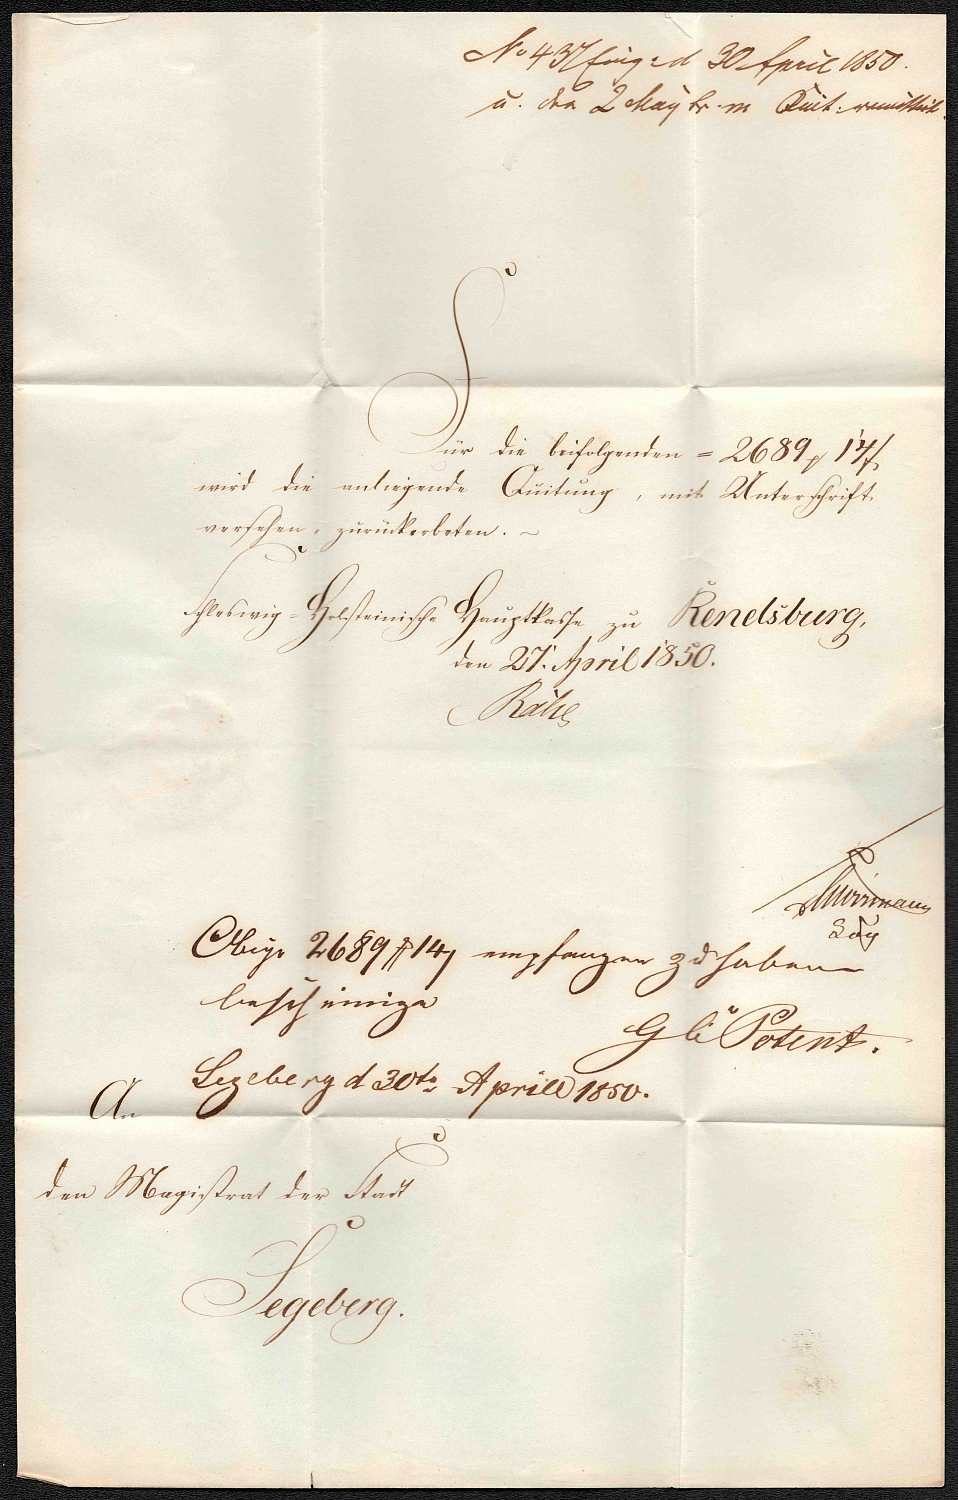 No 437 eing. d 30 April 1850.
u. den 2 May br. m Quit. remittirt.
Für die beifolgenden = 2689 ₰ 14 ß
wird die anliegende Quitung, mit Unterschrift
versehen, zurückerbeten. ~
Schleswig-Holsteinische Hauptkasse zu Rendsburg,
den 27. April 1850.
Obige 2689 ₰ 14 ß empfangen zu haben
bescheinige
Potent.
Segeberg d 30te Aprill 1850.
An
den Magistrat der Stadt
Segeberg.